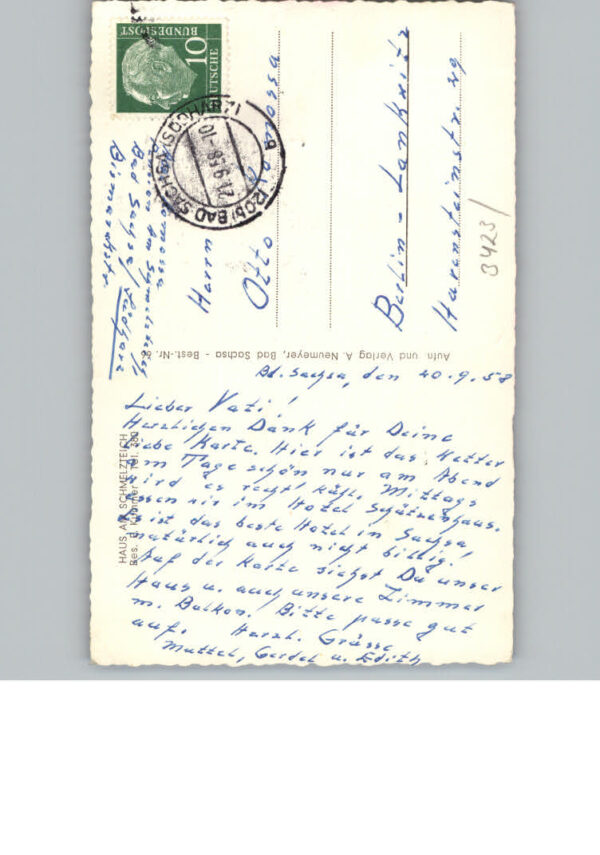 Bd. Sachsa, den 20.9.58
Lieber Vati!
Herzlichen Dank für Deine
liebe Karte. Hier ist das Wetter
am Tage schön nur am Abend
wird es recht kühl. Mittags
essen wir im Hotel Schützenhaus.
Es ist das beste Hotel in Sachsa,
natürlich auch nicht billig.
Auf der Karte siehst Du unser
Haus u. auch unsere Zimmer
m. Balkon. Bitte passe gut
auf. Herzl. Grüsse
Muttel, Gerdel u. Edith
HAUS AM SCHMELZTEICH
Bes. Tel. 380
Aufn und Verlag A. Neumeyer, Bad Sachsa - Best.-Nr.
Bad Sachsa / Südharz
Bismarckstr.
Herrn
Otto
Berlin - Lankwitz
8423/
DEUTSCHE
BUNDESPOST
10
(20b) BAD SACHSA (SÜDHARZ)
21.9.58-10